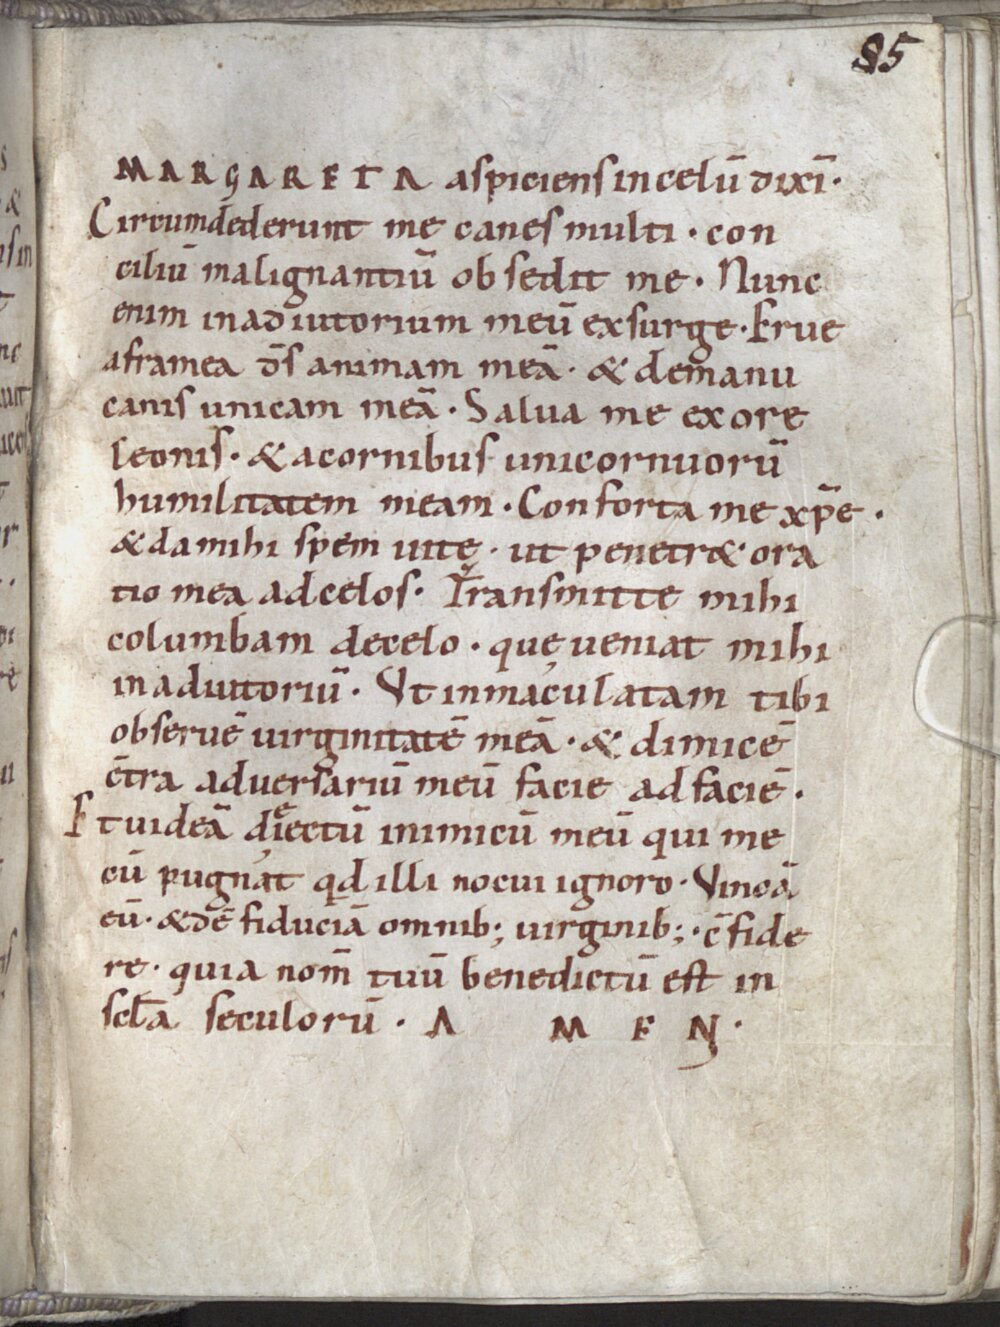 85
MARGARETA aspiciens in celū dixī·
Circumdederunt me canes multi · con
ciliū malignantiū obsedit me · Nunc
enim in adiutorium meū exsurge · Erue
a framea d̄s animam meā · & de manu
canis unicam meā · Salua me ex ore
leonis · & a cornibus unicornuorū
humilitatem meam · Conforta me xp̄e ·
& da mihi spem uitę · ut penetr& ora
tio mea ad celos · Transmitte mihi
columbam de celo · quę ueniat mihi
in adiutoriū · Ut inmaculatam tibi
obseruē uirginitatē meā · & dimicē
c̄tra aduersariū meū facie ad faciē ·
Et uideā deiectū inimicū meū qui me
cū pugnat qd illi nocui ignoro · Vincā
eū · & dē fiduciā omnib; uirginib; · c̄fide
re · quia nom̄ tuū benedictū est in
scl̄a seculorū · A M E N ·